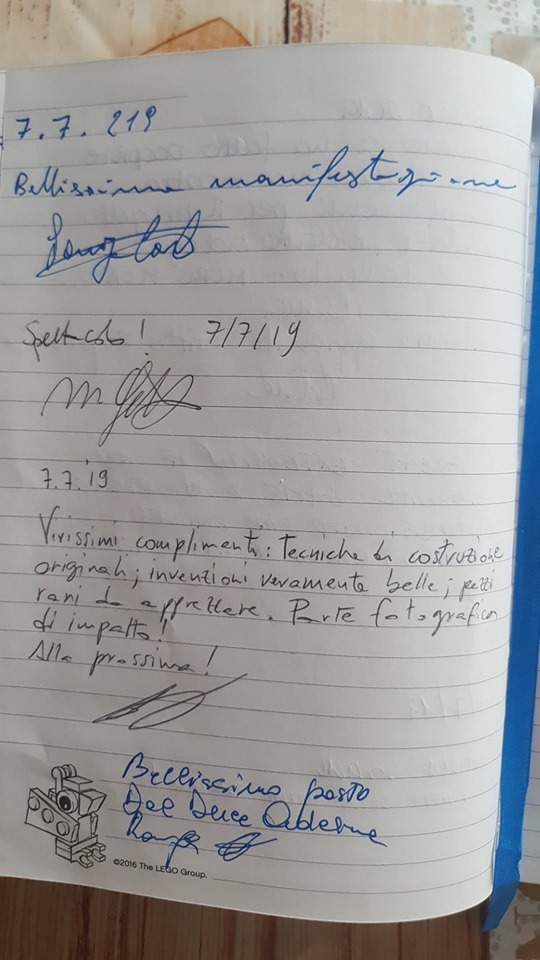 7.7.219
Bellissima manifestazione
Spettacolo! 7/7/19
7.7.19
Vivissimi complimenti: Tecniche di costruzione
originali; invenzioni veramente belle; pezzi
rari da apprezzare. Parte fotografica
di impatto!
Alla prossima!
Bellissimo posto
©2016 The LEGO Group.